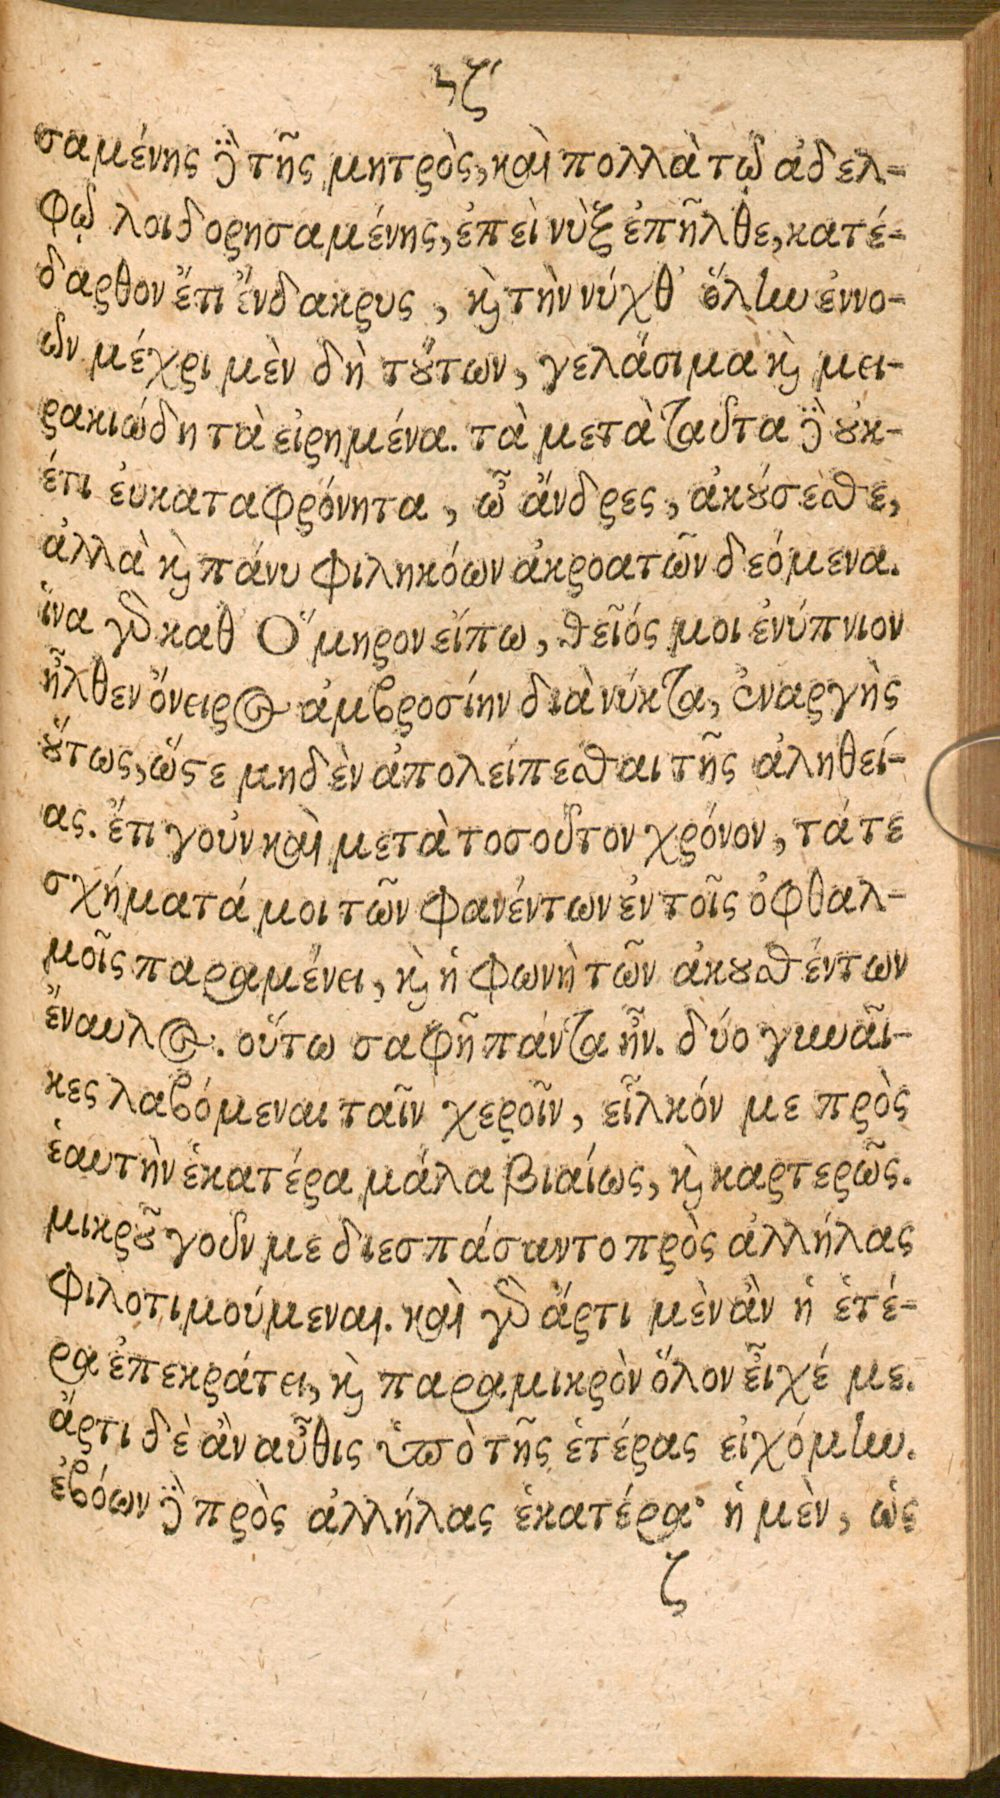 ϟζʹ
σαμένης δὲ τῆς μητρὸς, καὶ πολλὰ τῷ ἀδελ-
φῷ λοιδορησαμένης, ἐπεὶ νὺξ ἐπῆλθε, κατέ-
δαρθον ἔτι ἔνδακρυς, κỳ τὴν νύχθ᾽ ὅλην ἐννο-
ῶν μέχρι μὲν δὴ τȣ́των, γελάσιμα κỳ μει-
ρακιώδη τὰ εἰρημένα. τὰ μετὰ ταῦτα δὲ ȣ̓κ-
έτι ἐυκαταφρόνητα, ὦ ἄνδρες, ἀκȣ́σεσθε,
ἀλλὰ κỳ πάνυ φιληκόων ἀκροατῶν δεόμενα.
ἵνα γὸ καθ Ὅμηρον εἴπω, θεῖός μοι ἐνύπνιον
ἦλθεν ὄνειρος ἀμβροσίην διὰ νύκτα, ἐναργὴς
ȣ̔́τως, ὥστε μηδὲν ἀπολείπεσθαι τῆς ἀληθεί-
ας. ἔτι γοὖν καὶ μετὰ τοσοῦτον χρόνον, τά τε
σχήματά μοι τῶν φανέντων ἐν τοῖς ὀφθαλ-
μοῖς παραμένει, κỳ ἡ φωνὴ τῶν ἀκȣσθέντων
ἔναυλος. οὕτω σαφῆ πάντα ἦν. δύο γυναῖ-
κες λαβόμεναι ταῖν χεροῖν, εἷλκόν με πρὸς
ἑαυτὴν ἑκατέρα μάλα βιαίως, κỳ καρτερῶς.
μικρȣ͂ γοῦν με διεσπάσαντο πρὸς ἀλλήλας
φιλοτιμούμεναι. καὶ γὸ ἄρτι μὲν ἂν ἡ ἑτέ-
ρα ἐπεκράτει, κỳ παραμικρὸν ὅλον εἶχέ με.
ἄρτι δὲ ἂν αὖθις ὑπὸ τῆς ἑτέρας εἰχόμην.
ἐβόων δὲ πρὸς ἀλλήλας ἑκατέρα· ἡ μὲν, ὡς
ζ